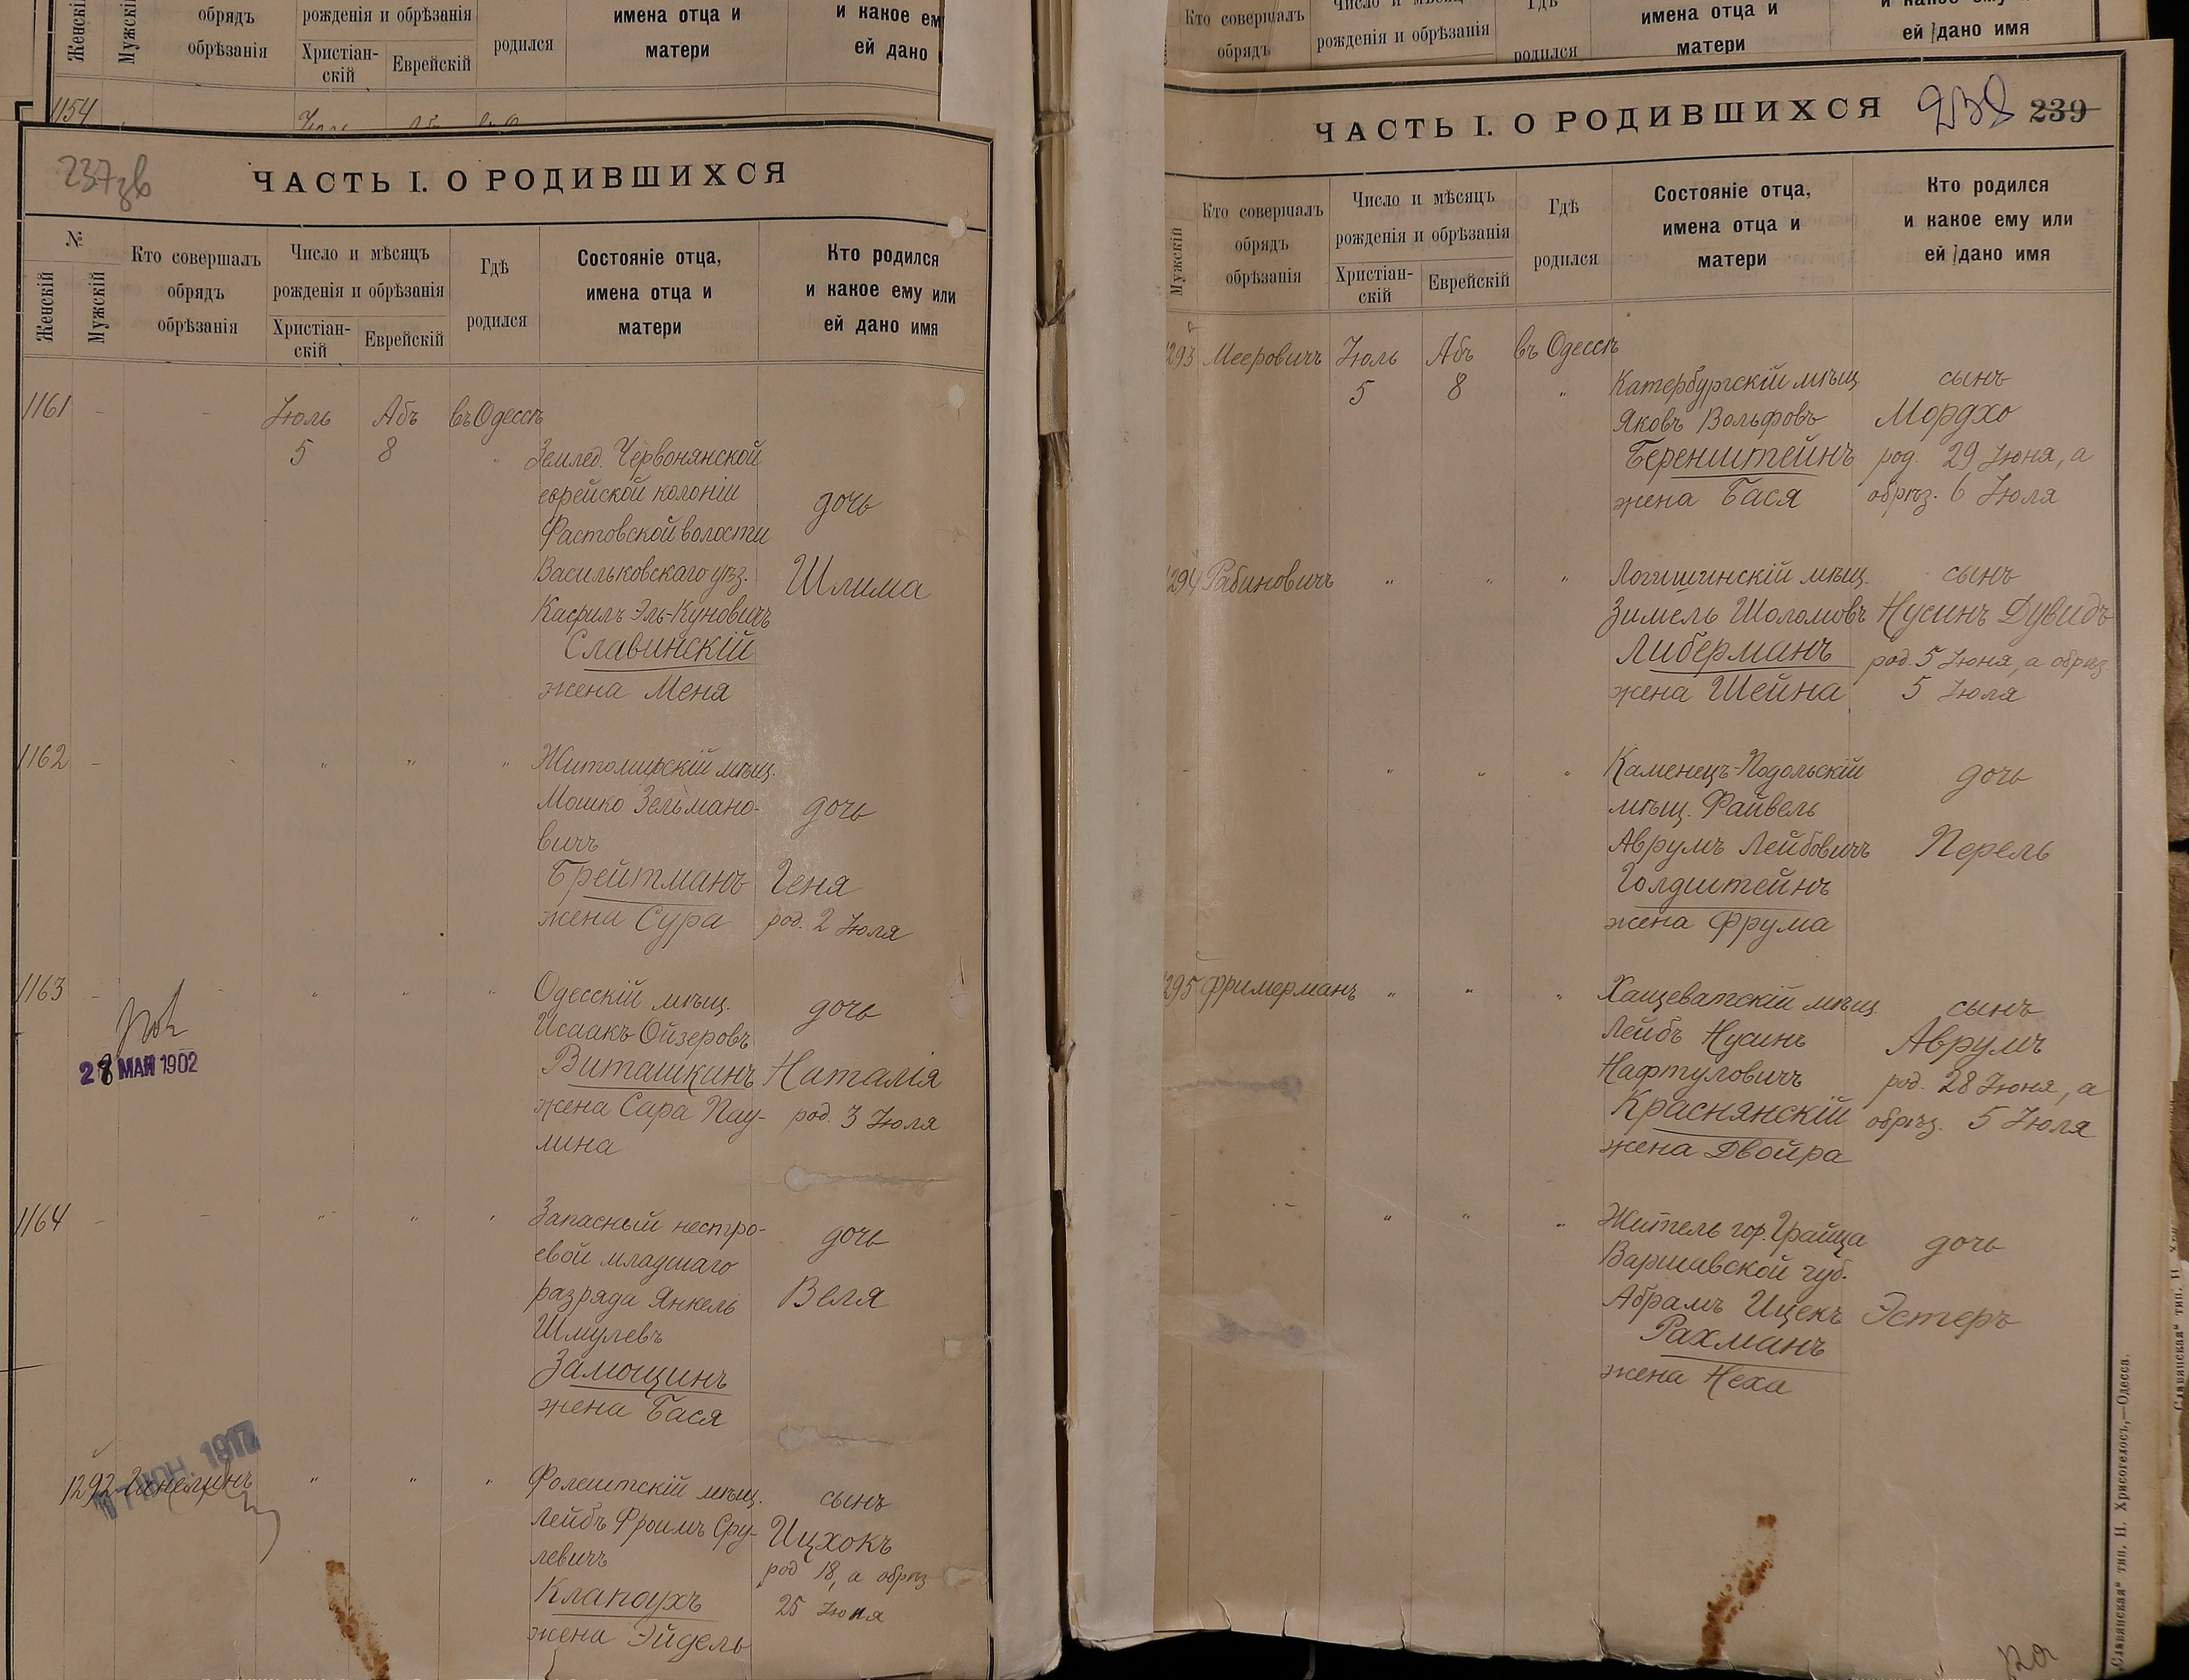 Женскій
Мужскій
обрядъ
обрѣзанія
рожденія и обрѣзанія
Христіан-
скій
Еврейскій
родился
имена отца и
матери
и какое ем
ей дано
1154
237зв
ЧАСТЬ I. О РОДИВШИХСЯ
№
Женскій
Мужскій
Кто совершалъ
обрядъ
обрѣзанія
Число и мѣсяцъ
рожденія и обрѣзанія
Христіан-
скій
Еврейскій
Гдѣ
родился
Состояніе отца,
имена отца и
матери
Кто родился
и какое ему или
ей дано имя
1161 - - Іюль Абъ въ Одессѣ
5 8 "
Землед. Червонянской
еврейской колоніи
Фастовской волости
Васильковскаго уѣз.
Касрилъ Эль-Куновичъ
Славинскій
жена Меня
дочь
Шлима
1162 - - " " "
Житомирскій мѣщ.
Мошко Зельмано-
вичъ
Брейтманъ
жена Сура
дочь
Геня
род. 2 Іюля
1163 - " " "
28 МАЯ 1902
Одесскій мѣщ.
Исаакъ Ойзеровъ
Виташкинъ
жена Сара Пау-
лина
дочь
Наталія
род. 3 Іюля
1164 - - " " "
Запасный нестро-
евой младшаго
разряда Янкель
Шмулевъ
Замощинъ
жена Бася
дочь
Веля
1292 " " "
ІЮН. 1917
Фолештскій мѣщ.
Лейбъ Фроимъ Сру-
левичъ
Клапоухъ
жена Эйдель
сынъ
Ицхокъ
род 18, а обрѣз
25 Іюня
Кто совершалъ
обрядъ
рожденія и обрѣзанія
родился
имена отца и
матери
ей дано имя
ЧАСТЬ I. О РОДИВШИХСЯ
238 239
Мужскій
Кто совершалъ
обрядъ
обрѣзанія
Число и мѣсяцъ
рожденія и обрѣзанія
Христіан-
скій
Еврейскій
Гдѣ
родился
Состояніе отца,
имена отца и
матери
Кто родился
и какое ему или
ей дано имя
1293 Мееровичъ Іюль Абъ въ Одессѣ
5 8 "
Катербургскій мѣщ.
Яковъ Вольфовъ
Беренштейнъ
жена Бася
сынъ
Мордхо
род. 29 Іюня, а
обрѣз. 6 Іюля
1294 Рабиновичъ " " "
Логишинскій мѣщ.
Зимель Шоломовъ
Либерманъ
жена Шейна
сынъ
Нусинъ Дувидъ
род. 5 Іюня, а обрѣз.
5 Іюля
- " " "
Каменецъ-Подольскій
мѣщ. Файвель
Аврумъ Лейбовичъ
Голдштейнъ
жена Фрума
дочь
Перель
1295 Фримерманъ " " "
Хащеватскій мѣщ.
Лейбъ Нусинъ
Нафтуловичъ
Краснянскій
жена Двойра
сынъ
Аврумъ
род. 28 Іюня, а
обрѣз. 5 Іюля
- - " " "
Житель гор. Грайца
Варшавской губ.
Абрамъ Ицекъ
Рахманъ
жена Неха
дочь
Эстеръ
„Славянская“ тип. Н. Хрисогелосъ,—Одесса.
Славянская“ тип. Н. Хри